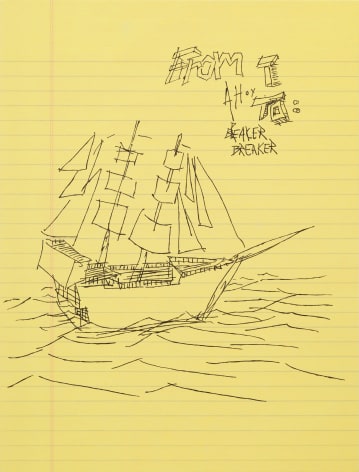 From
AHOY
BEAKER
BREAKER